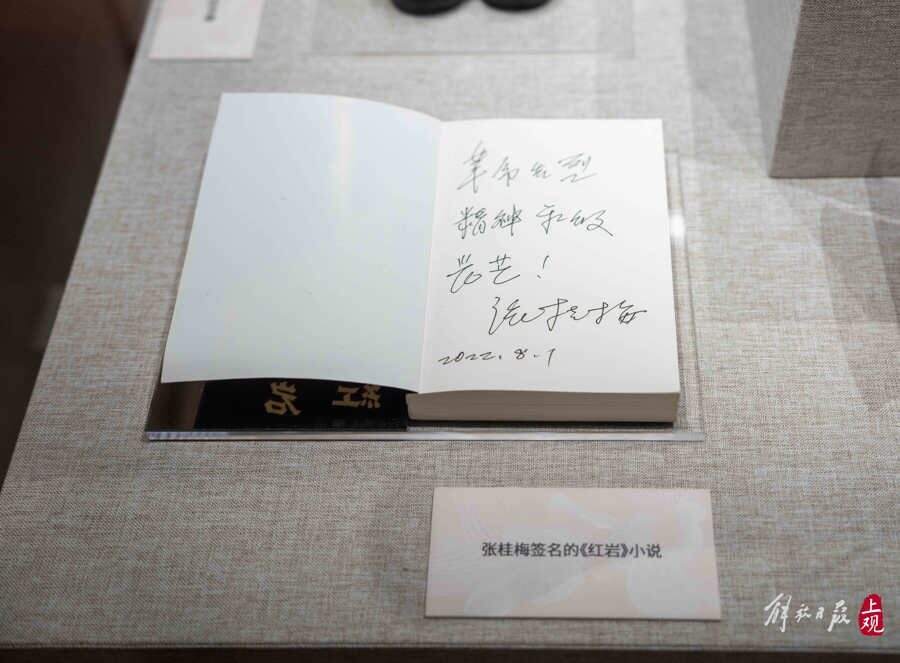 革命先烈
精神永放
光芒！
张桂梅
2022.8.1
红岩
张桂梅签名的《红岩》小说
解放日报
上观